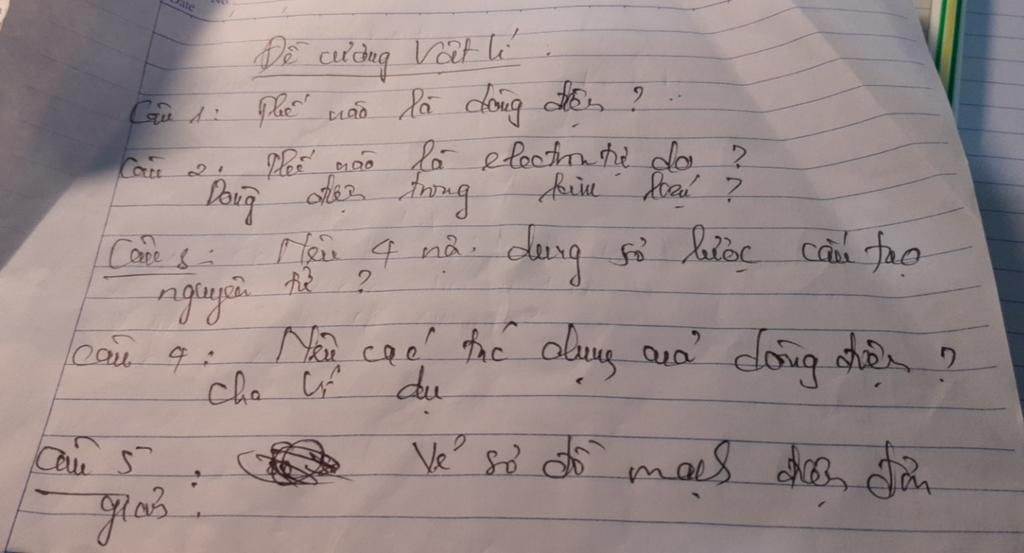 Đề cương Vật lí.
Câu 1: Thế nào là dòng điện?
Câu 2: Thế nào là electron tự do?
Dòng điện trong kim loại?
Câu 3: Nêu 4 nội dung sơ lược cấu tạo
nguyên tử?
Câu 4: Nêu các tác dụng của dòng điện?
cho ví dụ
Câu 5: Vẽ sơ đồ mạch điện đơn
giản.